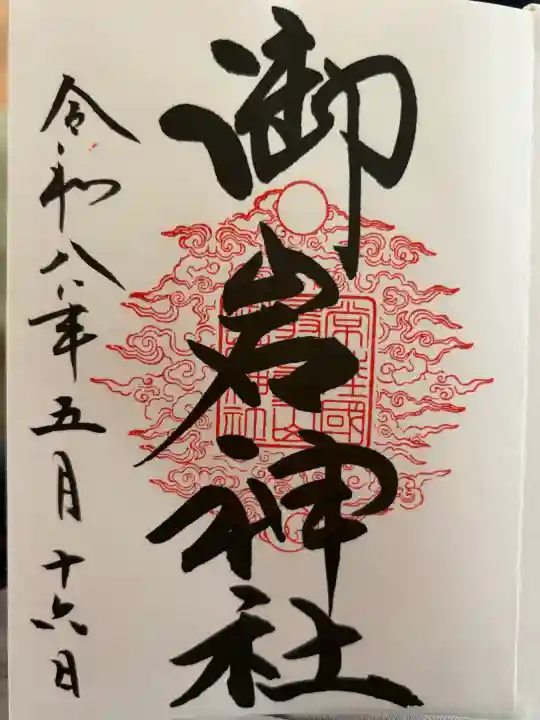 御岩神社
令和八年五月十六日